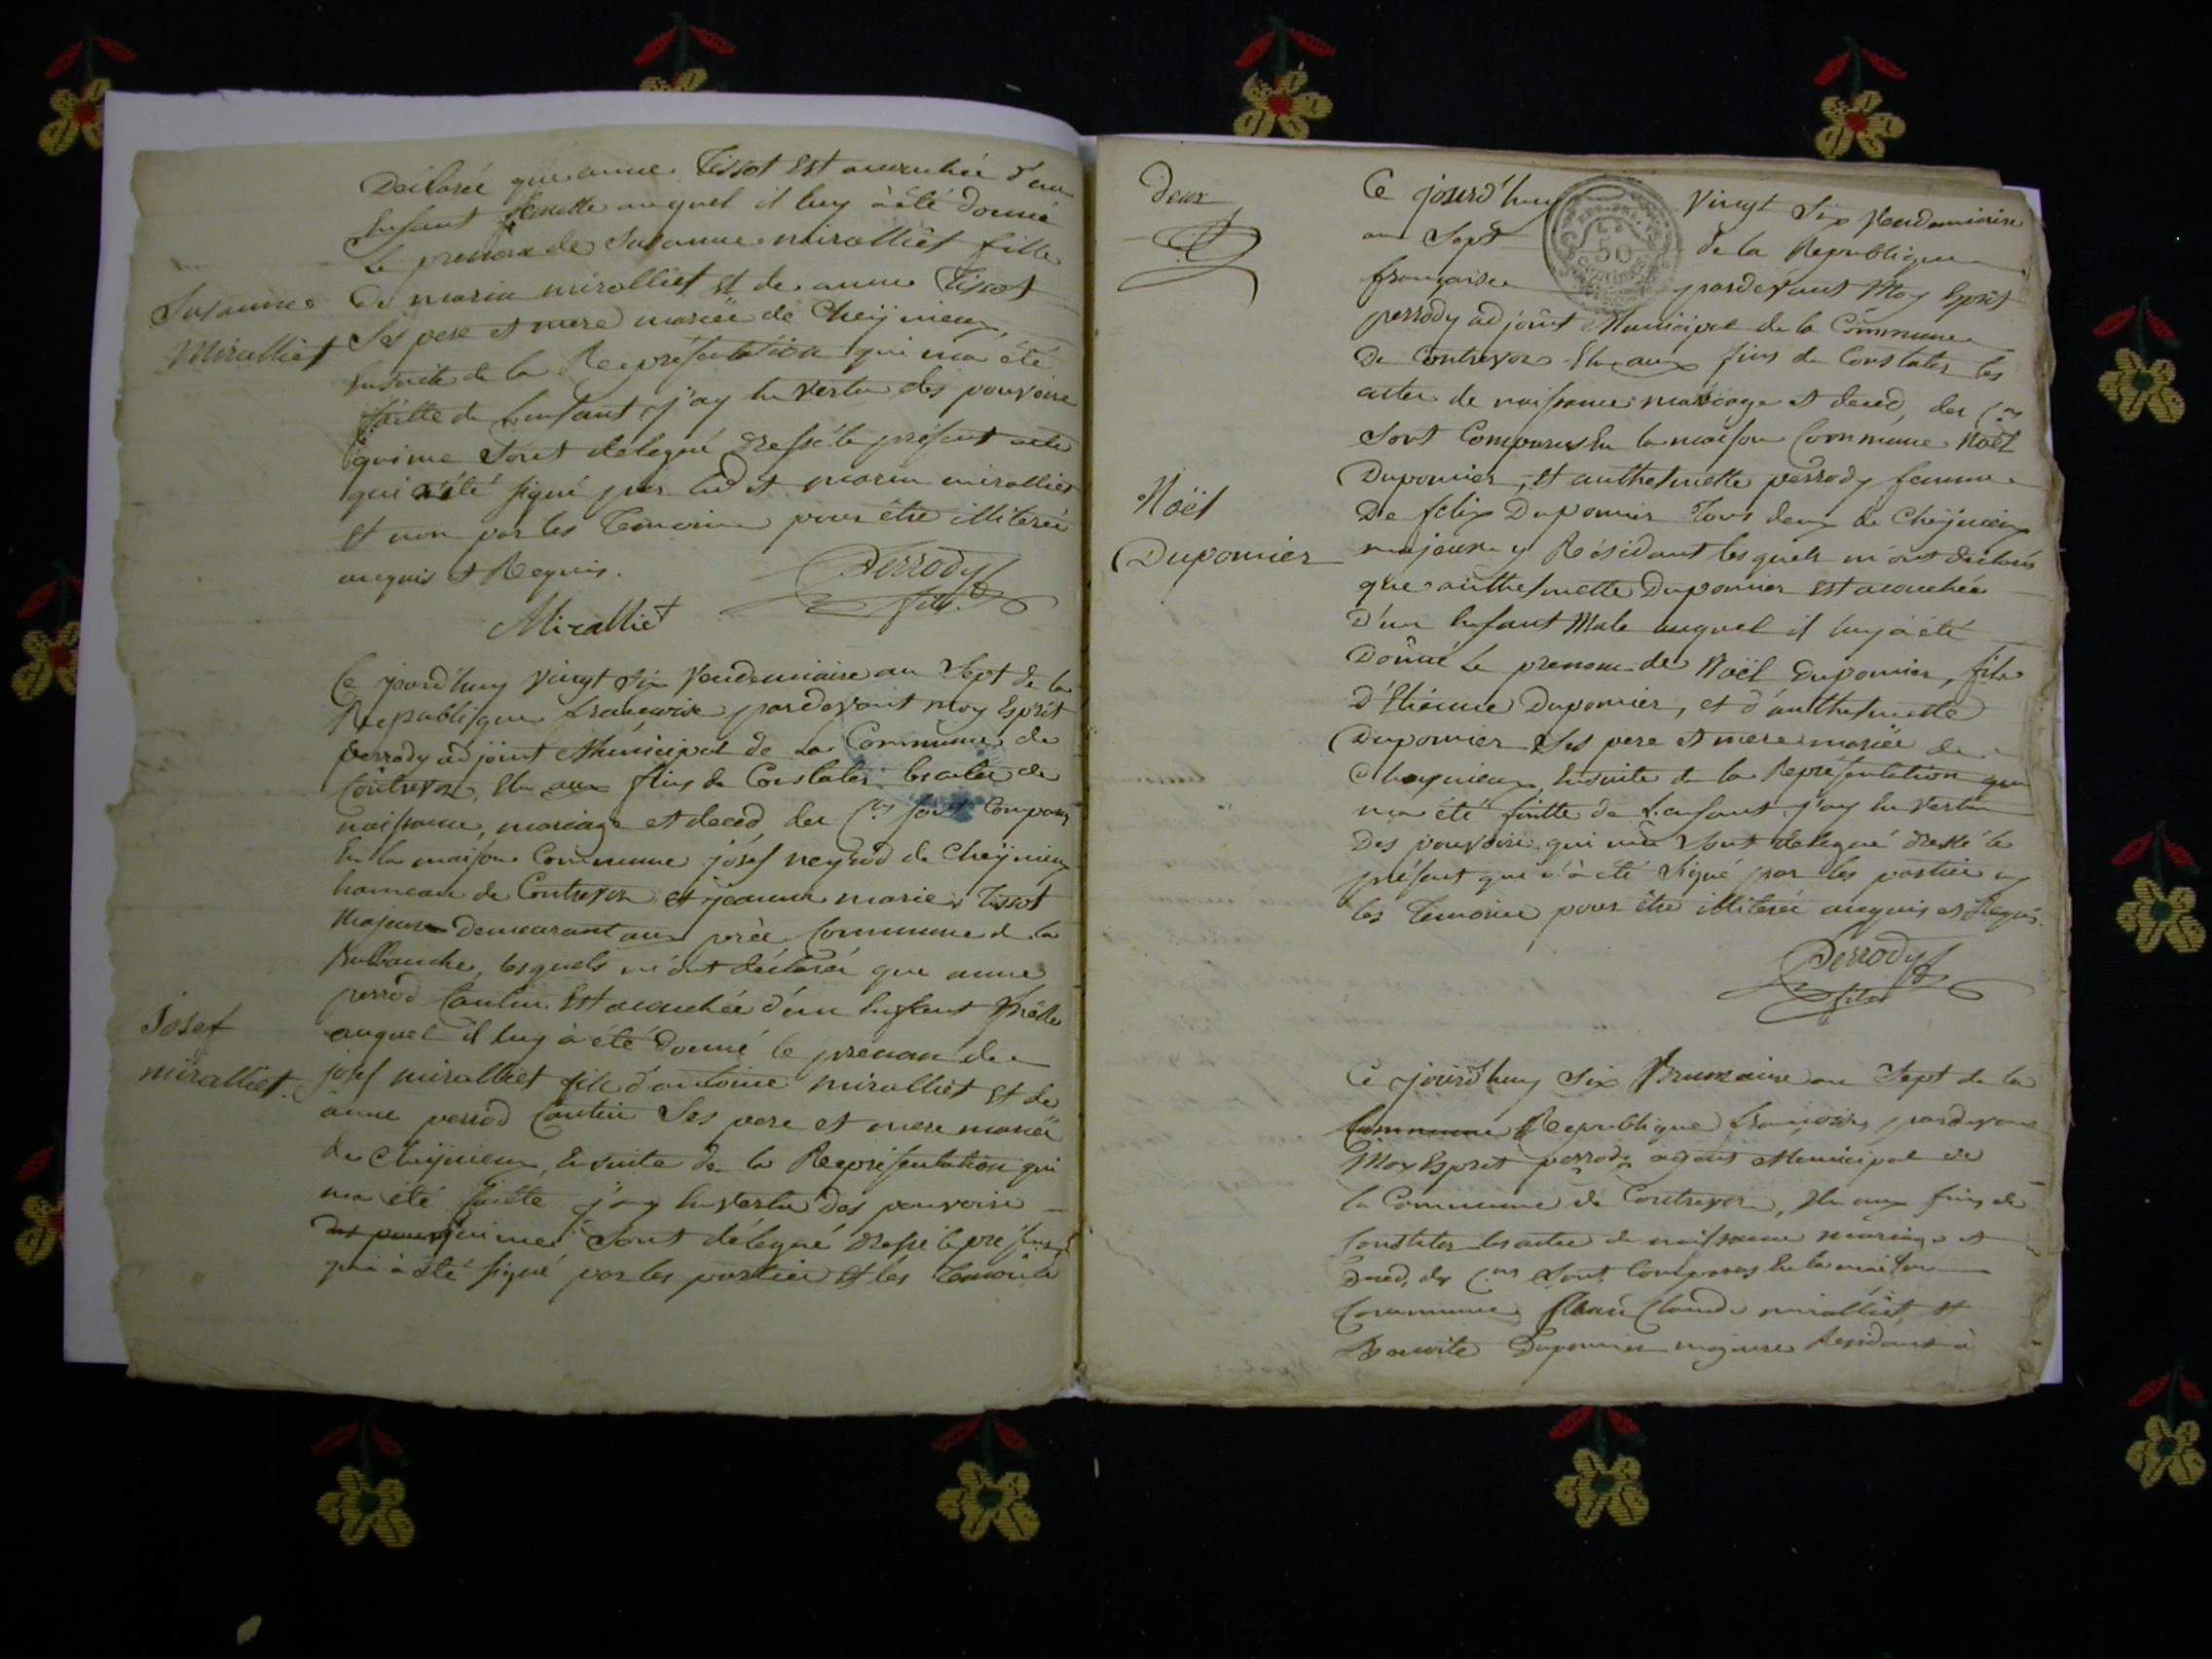 Déclaré que anne Tissot Est acouchée d'un
Enfant femelle auquel il luy à été donné
Le prenom de Susanne miralliet fille
De marin miralliet Et de anne Tissot
Susanne
Miralliet
Ses pere et mere mariée de Cheÿnieux,
Ensuite de la Representation qui m'a été
faitte de L'enfant j'ay En Vertu des pouvoirs
qui me Sont delegué dressé le présent acte
qui a été signé par led et marin miralliet
Et non par les Temoins pour être illiterée
enquis et Requis.
Perrody
fils
Miralliet
Ce jourd'huy Vingt Six Vendemiaire an Sept de la
Republique francaise pardevant moy Esprit
perrody adjoint Municipal de La Commune de
Contrevoz, Elu aux fins de Constater les actes de
naissance, mariage et deced, des C.ens sont Comparus
En la maison Commune jósef neyrod de Cheÿnieux
hameau de Contrevoz et jeanne marie Tissot
Majeurs Demeurant aux prés Commune de la
Burbanche, lesquels m'ont déclarée que anne
perrod Cantin Est acouchée d'un Enfant Mâle
auquel il luy à été donné le prenom de
Josef
miralliet.
josef miralliet fils d'antoine miralliet Et de
anne perrod Cantin Ses pere et mere mariée
de Cheÿnieux, Ensuite de la Representation qui
m'a été faitte j'ay En Vertu des pouvoirs
qui me Sont délegué dressé le présent
qui à été signé par les parties Et les temoins
deux
Ce jourd'huy Vingt Six Vendemiaire
an Sept de la Republique
50
francaise pardevant Moy Esprit
perrody adjoint Municipal de la Commune
De Contrevoz Elu aux fins de Constater les
actes de naissance mariage et deced, des C.ens
Sont Comparus En la maison Commune Noël
Duponnier, Et anthelmette perrody femme
Noël
Duponnier
De felix Duponnier Tous deux de Cheÿnieux
majeurs y Résidant lesquels m'ont déclarés
que anthelmette Duponnier Est acouchée
D'un Enfant Male auquel il luy à été
Donné Le prenom de Noël Duponnier, fils
D'Etienne Duponnier, et d'anthelmette
Duponnier Ses pere et mere mariée de
Cheynieux Ensuite de la Représentation qui
m'a été faitte de L'enfant j'ay En Vertu
Des pouvoirs qui me Sont delegué dressé le
présent qui n'à été Signé par les parties ny
les Temoins pour être illiterée enquis et Requis.
Perrody
fils
Ce jourd'huy Six Brumaire an Sept de la
Commune Republique francoise, pardevant
Moy Esprit perrody agent Municipal de
la Commune de Contrevoz, Elu aux fins de
Constater les actes de naissance mariage et
Deced, des C.ens Sont Comparus En la maison
Commune Claude miralliet, Et
Benoite Duponnier majeurs Residant à